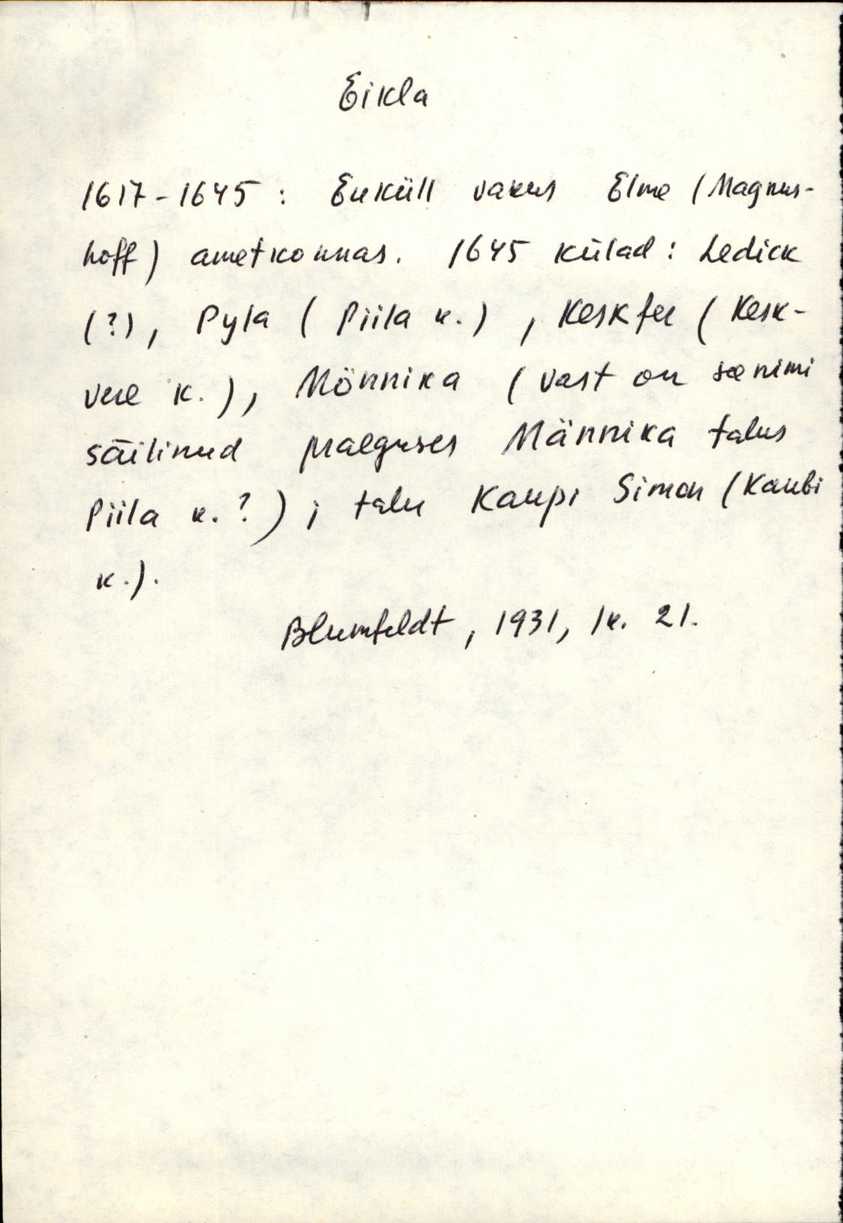 Eikla
1617-1645: Euküll vakus Elme (Magnus-
hoff) ametkonnas. 1645 külad: Ledick
(?), Pyla (Piila k.), Keskfer (Kesk-
vere k.), Mönnika (vast on see nimi
säilinud praeguses Männika talus
Piila k.?); talu Kaupi Simon (Kaubi
k.).
Blumfeldt, 1931, lk. 21.